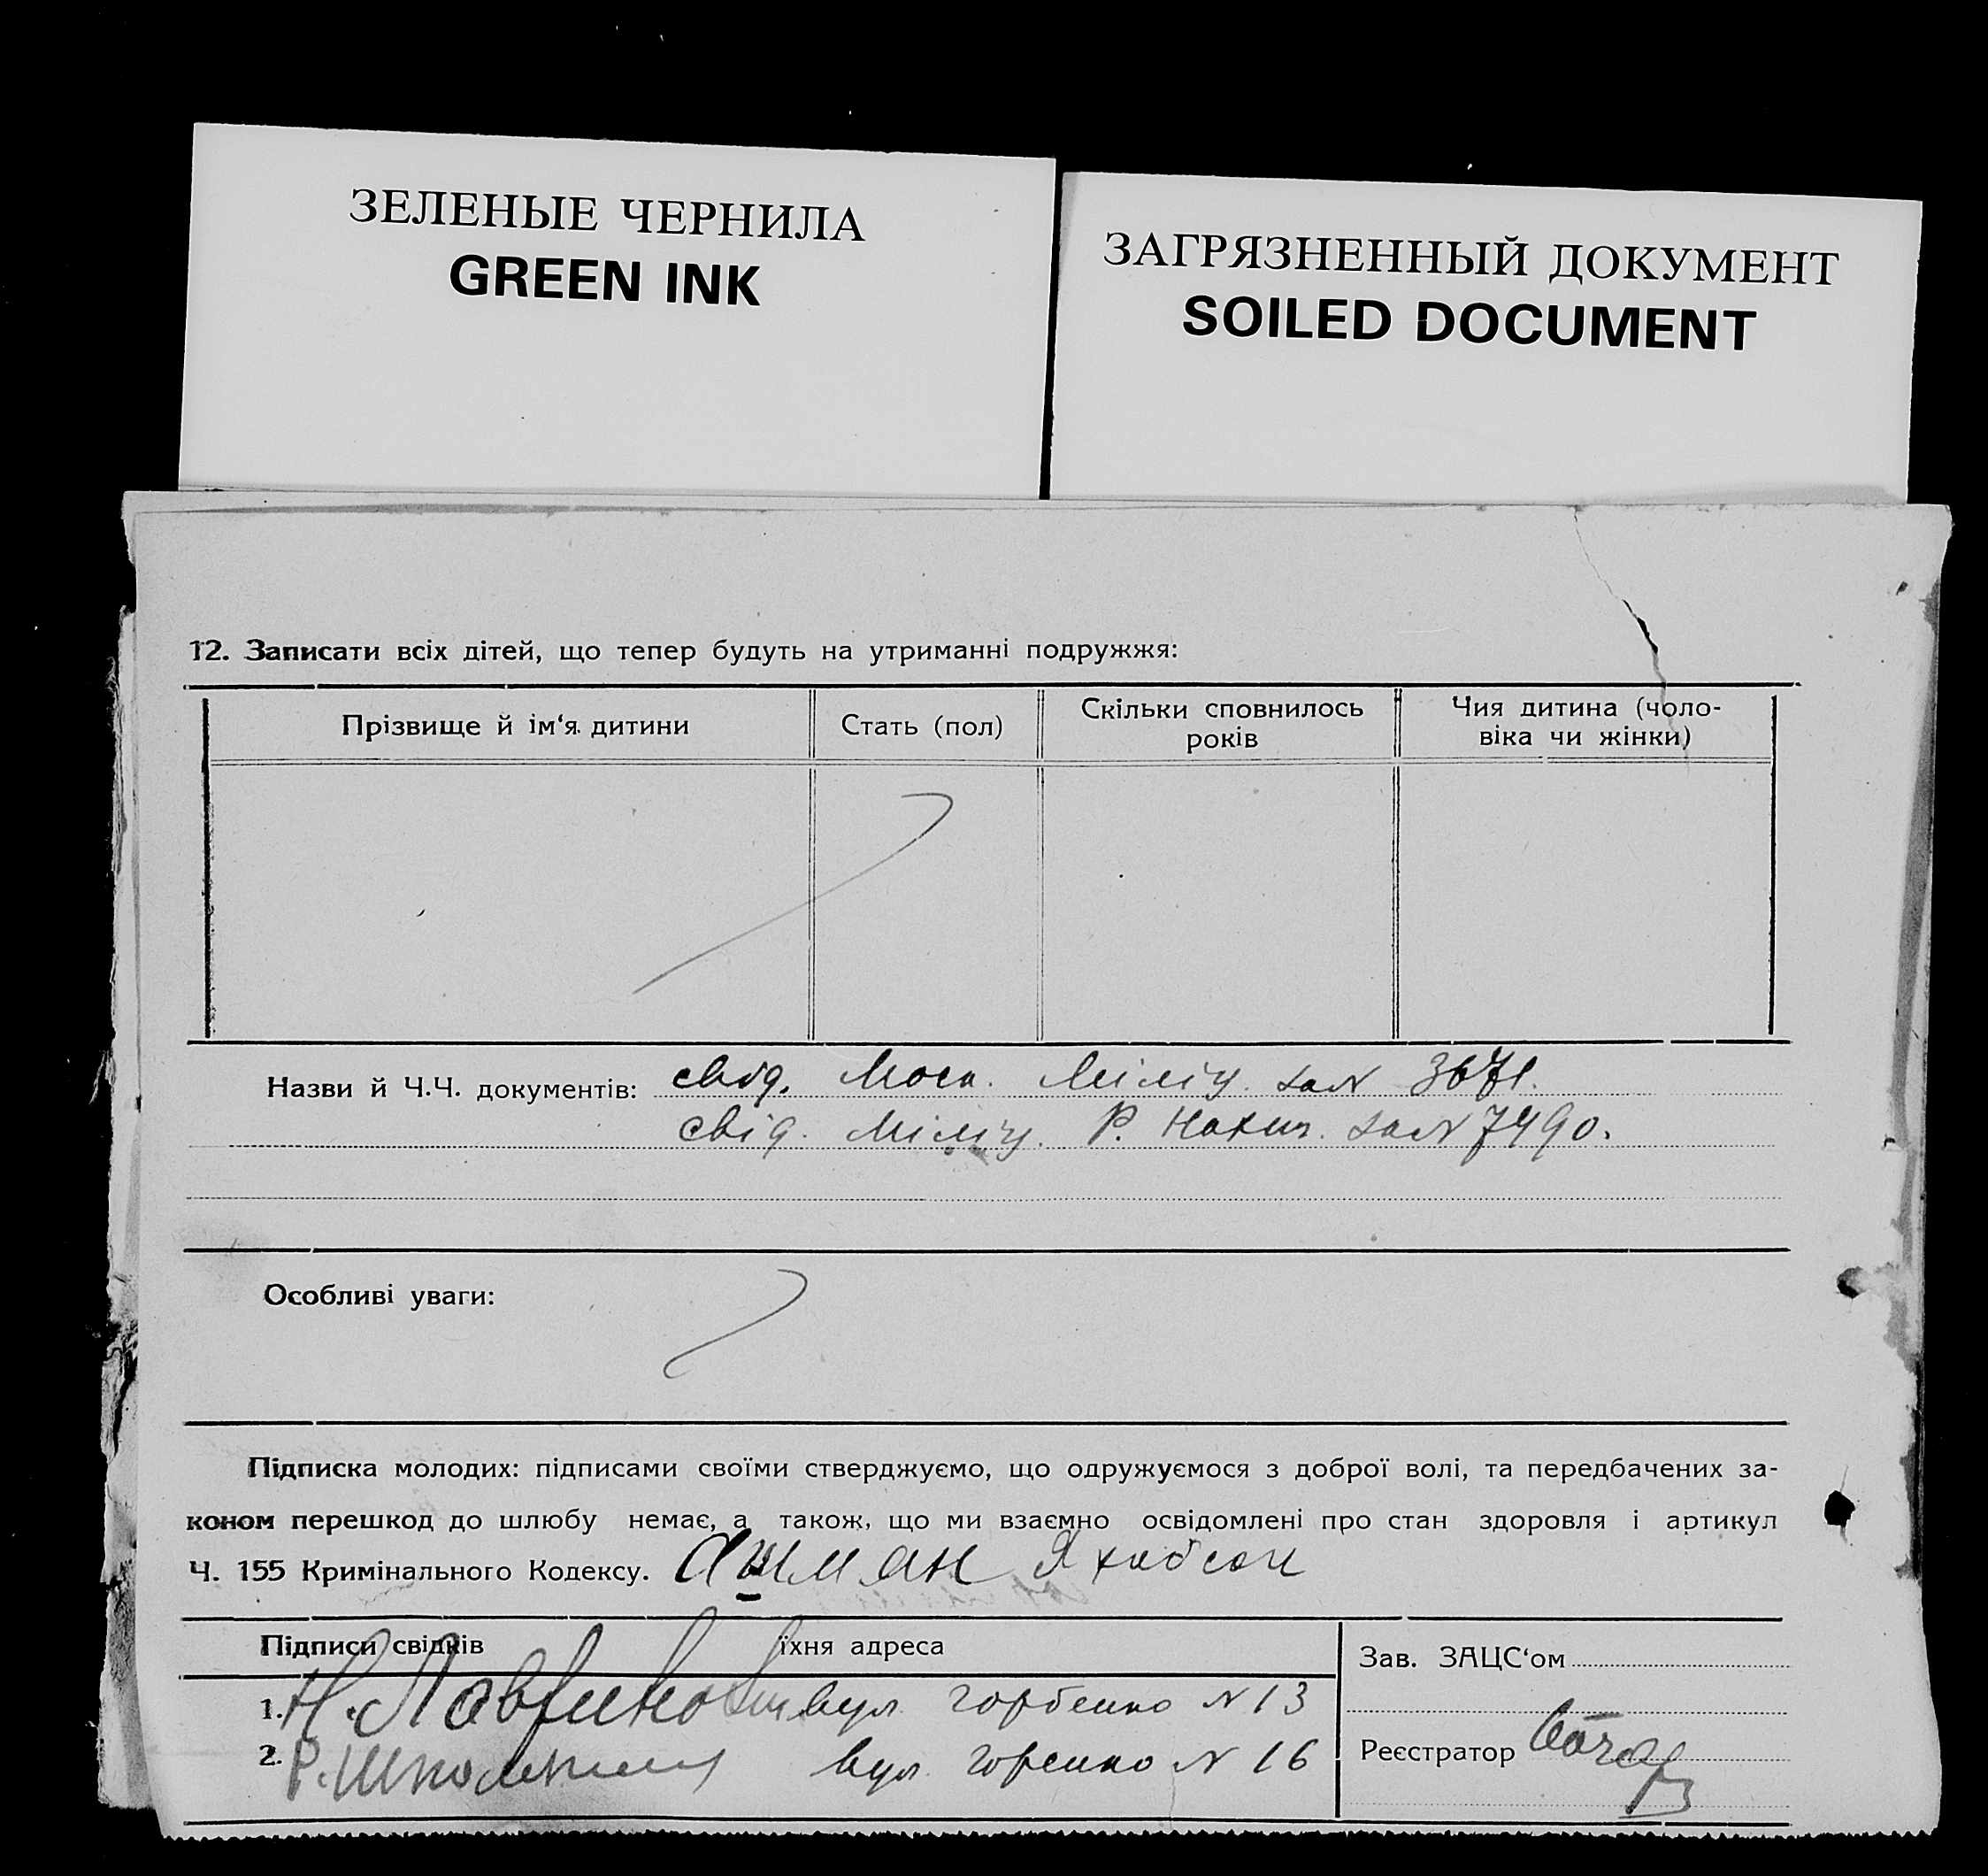 ЗЕЛЕНЫЕ ЧЕРНИЛА
GREEN INK
ЗАГРЯЗНЕННЫЙ ДОКУМЕНТ
SOILED DOCUMENT
12. Записати всіх дітей, що тепер будуть на утриманні подружжя:
Прізвище й ім‘я дитини
Стать (пол)
Скільки сповнилось
років
Чия дитина (чоло-
віка чи жінки)
Назви й Ч.Ч. документів: свід. Моск. Міліц. за N 3671.
свід. міліц. Р. Нахич. за N 7490.
Особливі уваги:
Підписка молодих: підписами своїми стверджуємо, що одружуємося з доброї волі, та передбачених за-
коном перешкод до шлюбу немає, а також, що ми взаємно освідомлені про стан здоровля і артикул
Ч. 155 Кримінального Кодексу.
Підписи свідків
їхня адреса
Зав. ЗАЦС‘ом
1. вул. N 13
2. вул. N 16
Реєстратор